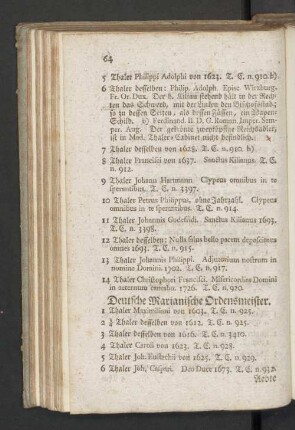 64
5 Thaler Philippi Adolphi von 1623. T. C. n. 910. b)
6 Thaler desselben: Philip. Adolph. Episc. Wirzburg.
Fr. Or. Dux. Der S. Kilian stehend hält in der Rech-
ten das Schwerd, mit der Linken den Bischofsstab;
zu dessen Seiten, als dessen Füssen, ein Wapen-
Schild. b) Ferdinand. II. D. G. Roman. Imper. Sem-
per. Aug. Der gekrönte zweyköpfige Reichsadler,
ist in Mad. Thaler-Cabinet nicht befindlich.
7 Thaler desselben von 1628. T. C. n. 910. b)
8 Thaler Francisci von 1637. Sanctus Kilianus. T. C.
n. 912.
9 Thaler Johann Hartmann. Clypeus omnibus in te
sperantibus. T. C. n. 3397.
10 Thaler Petrus Philippus, ohne Jahrzahl. Clypeus
omnibus in te sperantibus. T. C. n. 914.
11 Thaler Johannis Godefridi. Sanctus Kilianus 1693.
T. C. n. 3398.
12 Thaler desselben: Nulla salus bello pacem deposcimus
omnes 1693. T. C. n. 915.
13 Thaler Johannis Philippi. Adjutorium nostrum in
nomine Domini 1702. T. C. n. 917.
14 Thaler Christophori Francisci. Misericordias Domini
in aeternum cantabo. 1726. T. C. n. 920.
Deutsche Marianische Ordensmeister.
1 Thaler Maximiliani von 1603. T. C. n. 925.
2 ½ Thaler desselben von 1612. T. C. n. 925.
3 Thaler desselben von 1616. T. C. n. 3410.
4 Thaler Caroli von 1623. T. C. n. 928.
5 Thaler Joh. Eustachii von 1625. T. C. n. 929.
6 Thaler Joh. Caspari. Deo Duce 1673. T. C. n. 932.